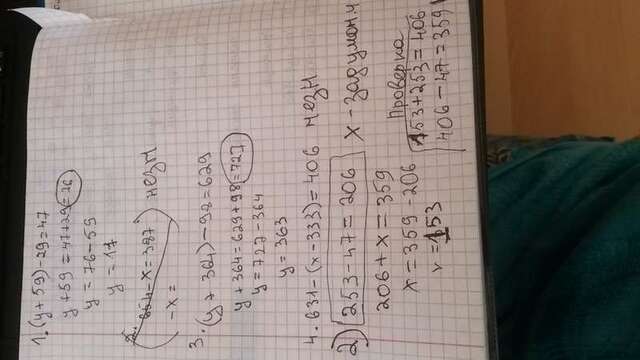 1. (y+59)-29=47
y+59=47+29=76
y=76-59
y=17
-x=387) незн
-x=
3. (y+364)-98=629
y+364=629+98=727
y=727-364
y=363
4. 631-(x-333)=406 незн
2) 253-47=206 x-задуман.ч
206+x=359
x=359-206
x=153
Проверка
153+253=406
406-47=359